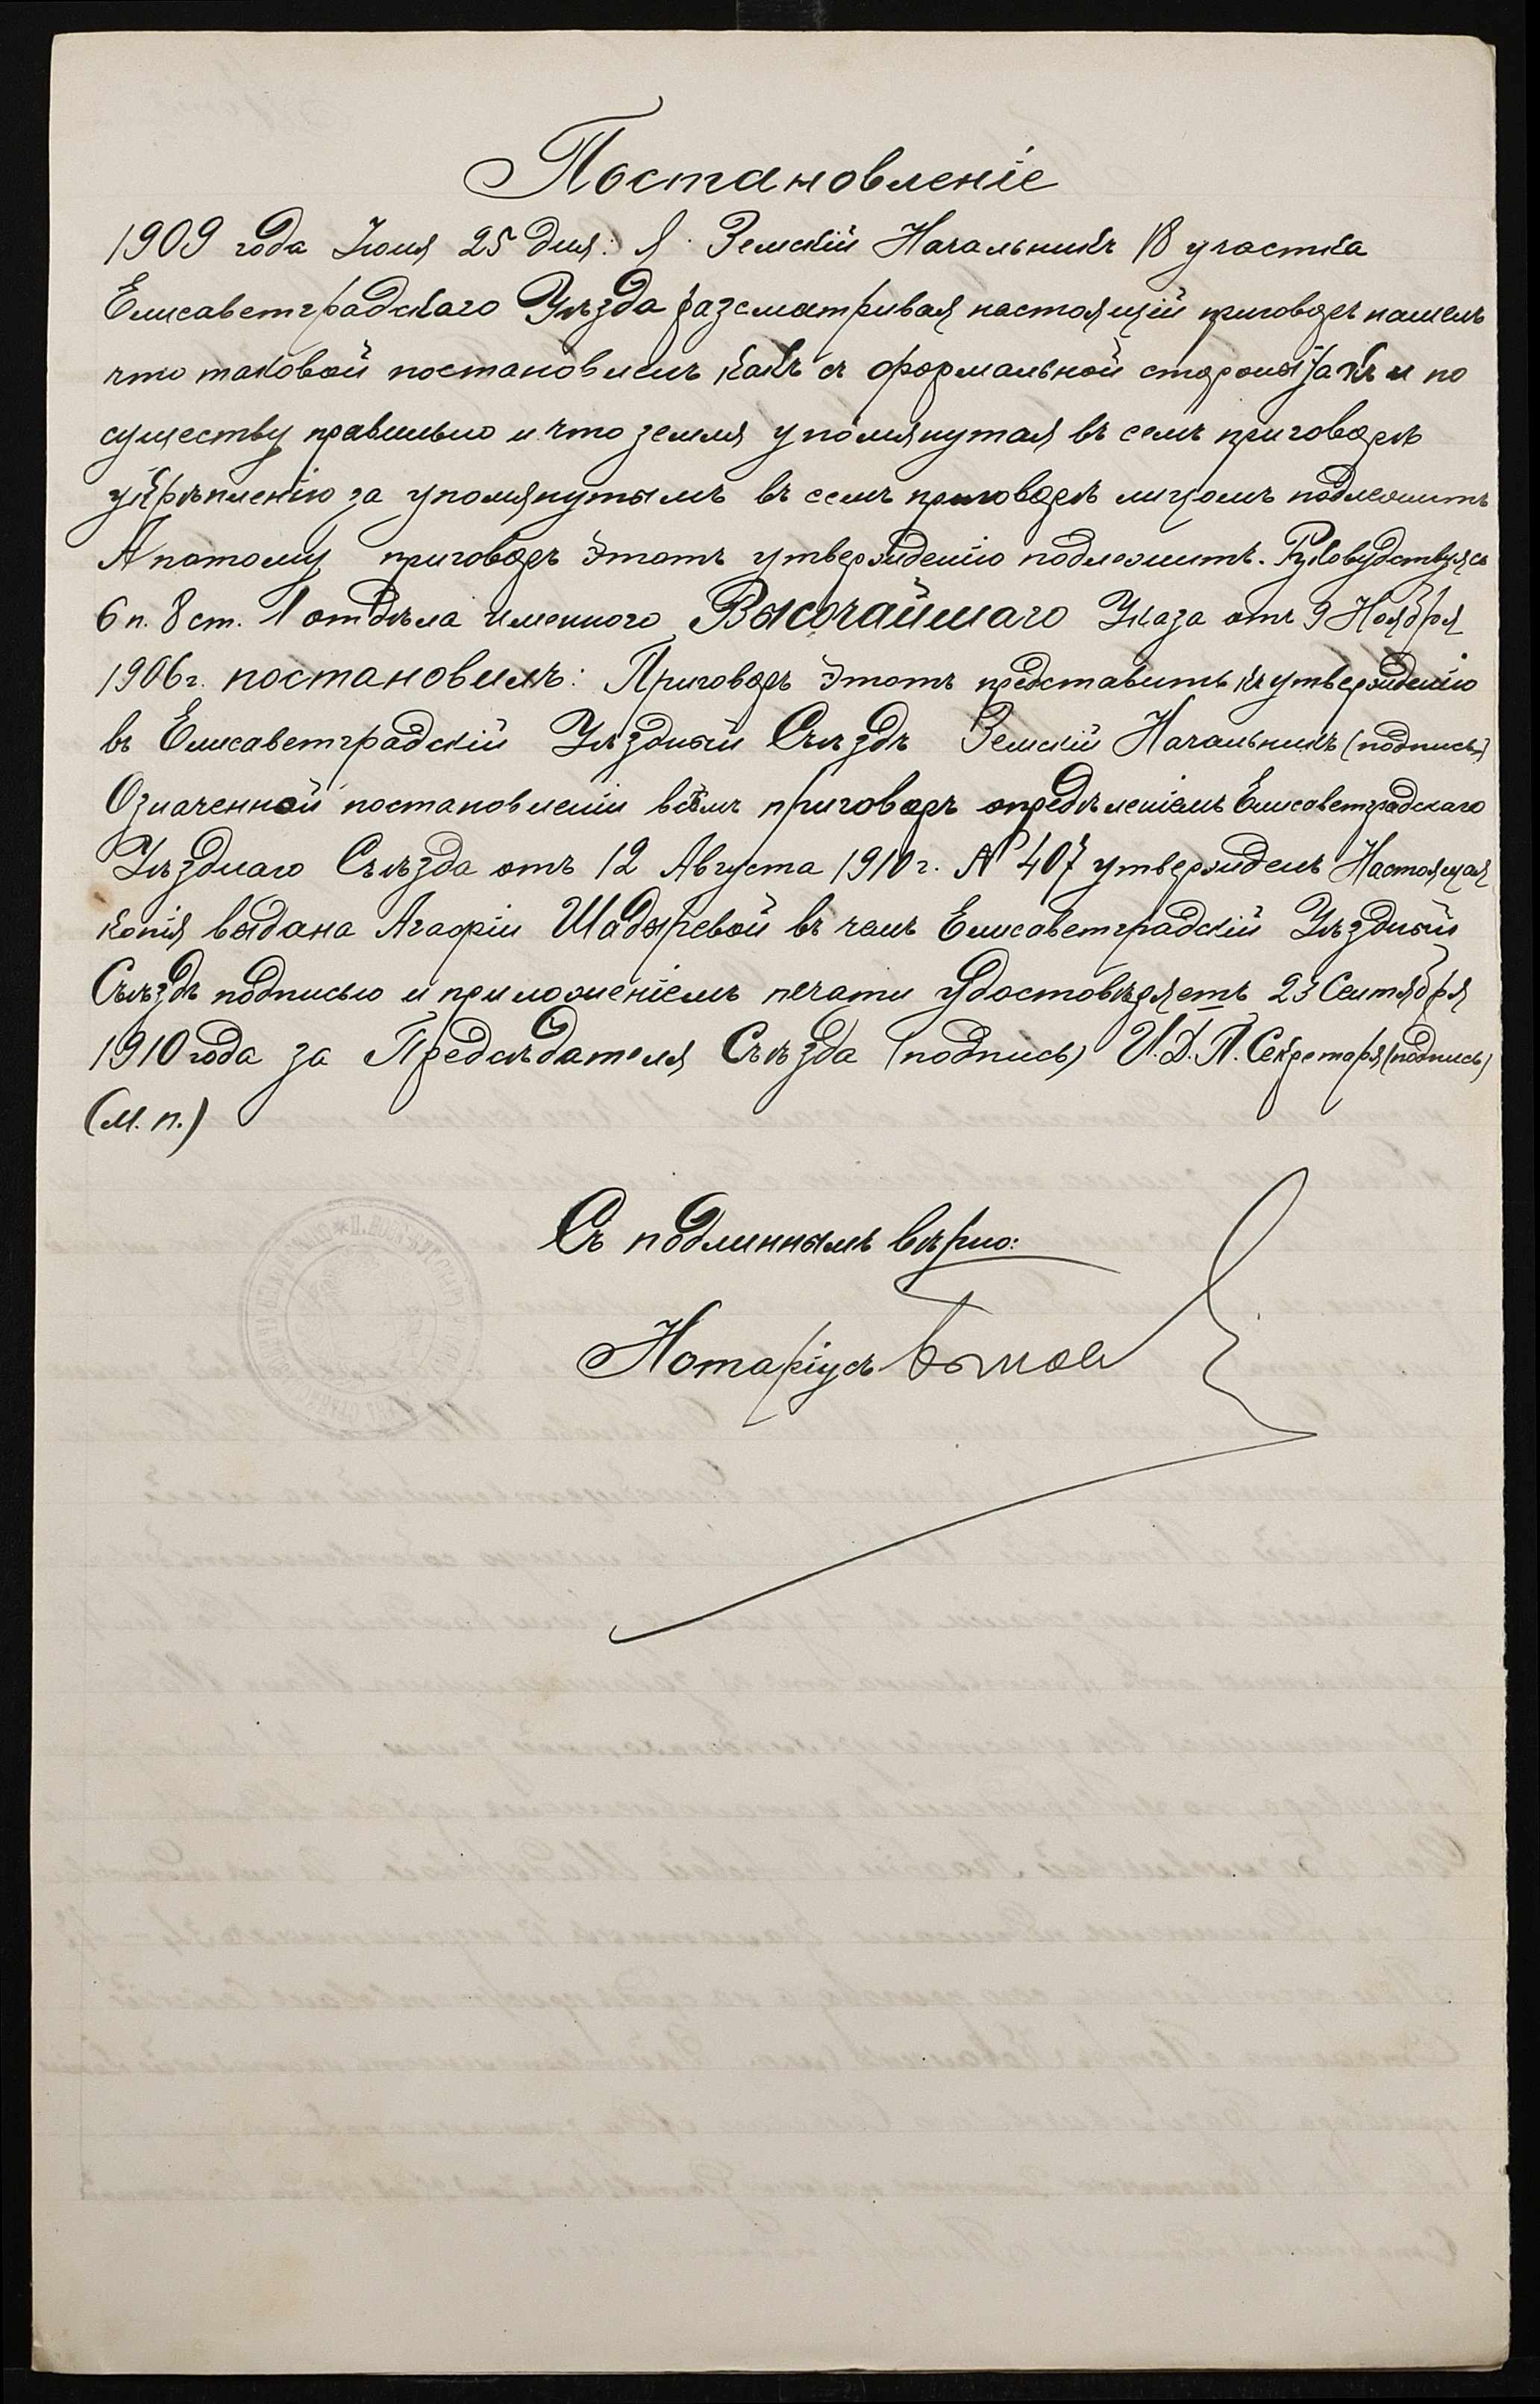 Постановленіе
1909 года Іюля 25 дня: Я Земскій Начальникъ 18 участка
Елисаветградскаго Уѣзда разсматривая настоящій приговоръ нашелъ
что таковой постановленъ какъ съ формальной стороны такъ и по
существу правильно и что земля упомянутая въ семъ приговорѣ
укрѣпленію за упомянутымъ въ семъ приговорѣ лицомъ подлежитъ
А потому приговоръ этотъ утвержденію подлежитъ. Руководствуясь
6 п. 8 ст. 1 отдѣла именного Высочайшаго Указа отъ 9 Ноября
1906 г. постановилъ: Приговоръ этотъ представить къ утвержденію
въ Елисаветградскій Уѣздный Съѣздъ Земскій Начальникъ (подпись)
Означенной постановленіи всѣмъ приговоръ опредѣленіемъ Елисаветградскаго
Уѣзднаго Съѣзда отъ 12 Августа 1910 г. № 407 утвержденъ Настоящая
копія выдана Агафіи Шадыревой въ чемъ Елисаветградскій Уѣздный
Съѣздъ подписью и приложеніемъ печати удостовѣряетъ 23 Сентября
1910 года за Предсѣдателя Съѣзда (подпись) И. Д. П. Секретаря (подпись)
(м. п.)
Съ подлиннымъ вѣрно:
Нотаріусъ